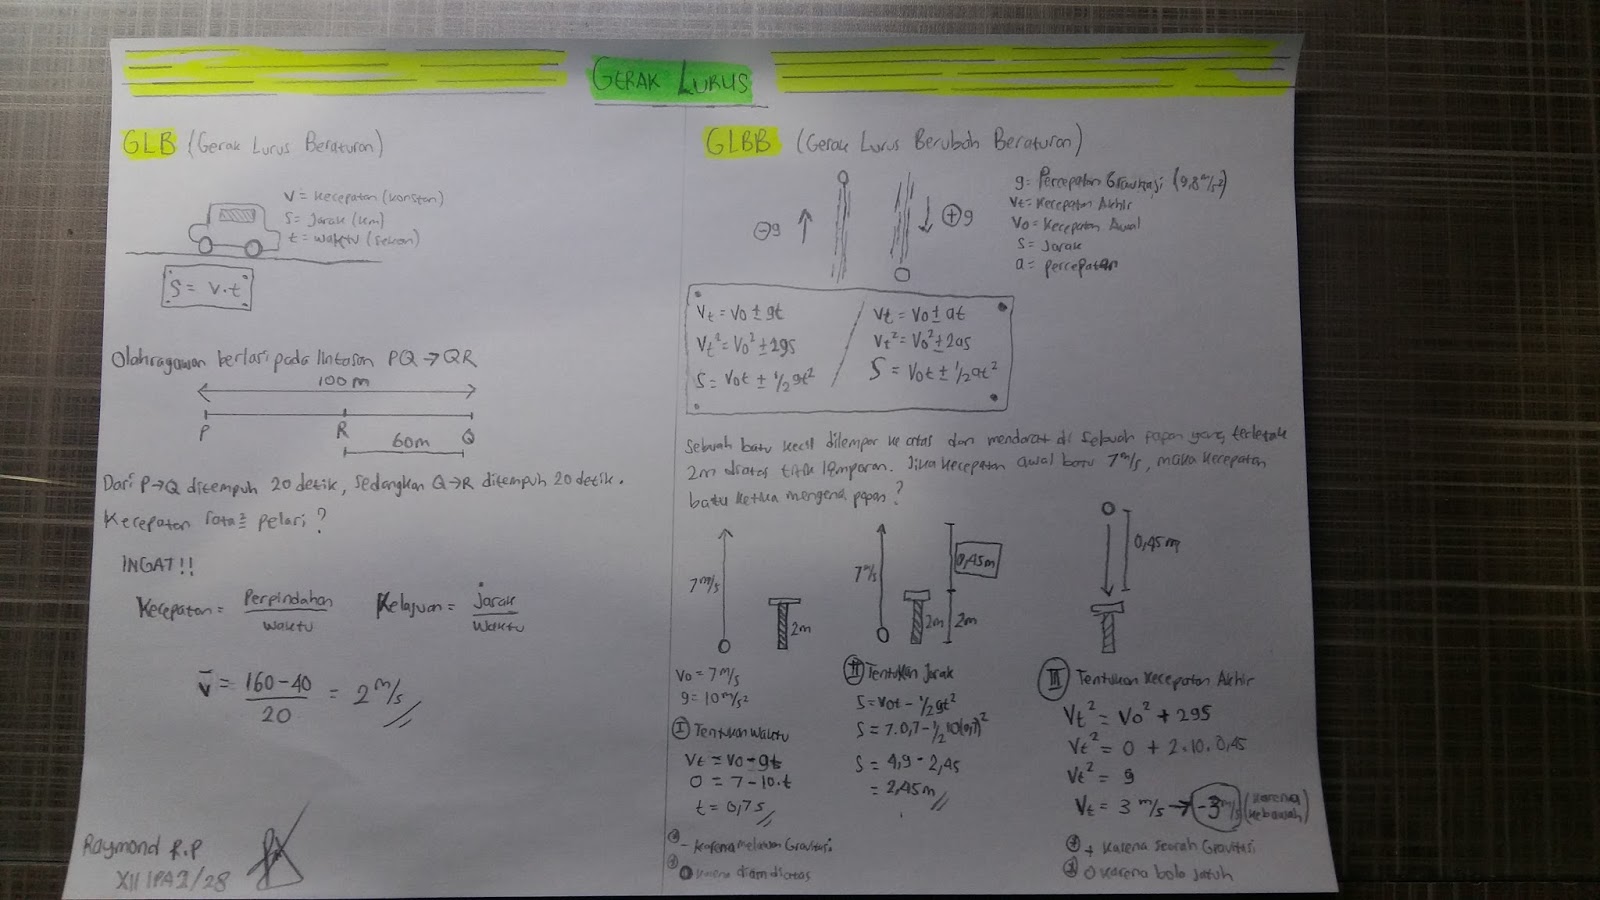 GERAK LURUS
GLB (Gerak Lurus Beraturan)
V = Kecepatan (konstan)
S = Jarak (km)
t = waktu (sekon)
S = V.t
Olahragawan berlari pada lintasan PQ → QR
100 m
P R Q
60m
Dari P→Q ditempuh 20 detik, sedangkan Q→R ditempuh 20 detik.
Kecepatan rata² pelari?
INGAT!!
Kecepatan = Perpindahan / waktu
Kelajuan = jarak / waktu
v̄ = 160-40 / 20 = 2 m/s
Raymond R.P
XII IPA2/28
GLBB (Gerak Lurus Berubah Beraturan)
⊖g
⊕g
g = Percepatan Gravitasi (9,8 m/s²)
Vt = Kecepatan Akhir
Vo = Kecepatan Awal
S = Jarak
a = percepatan
Vt = Vo ± gt / Vt = Vo ± at
Vt² = Vo² ± 2gs
Vt² = Vo² ± 2as
S = Vot ± ½gt²
S = Vot ± ½at²
Sebuah batu kecil dilempar ke atas dan mendarat di sebuah papan yang terletak
2m diatas titik lemparan. Jika kecepatan awal batu 7 m/s, maka kecepatan
batu ketika mengenai papan?
7 m/s
2m
7 m/s
0,45m
2m
2m
0,45m
Vo = 7 m/s
g = 10 m/s²
I Tentukan Waktu
Vt = Vo - gt
0 = 7 - 10.t
t = 0,7 s
- Karena melawan Gravitasi
0 karena diam diatas
II Tentukan Jarak
S = Vot - ½gt²
S = 7.0,7 - ½ 10(0,7)²
S = 4,9 - 2,45
= 2,45m
III Tentukan Kecepatan Akhir
Vt² = Vo² + 2gs
Vt² = 0 + 2.10.0,45
Vt² = 9
Vt = 3 m/s → -3 m/s (karena kebawah)
+ Karena Searah Gravitasi
0 karena bola jatuh